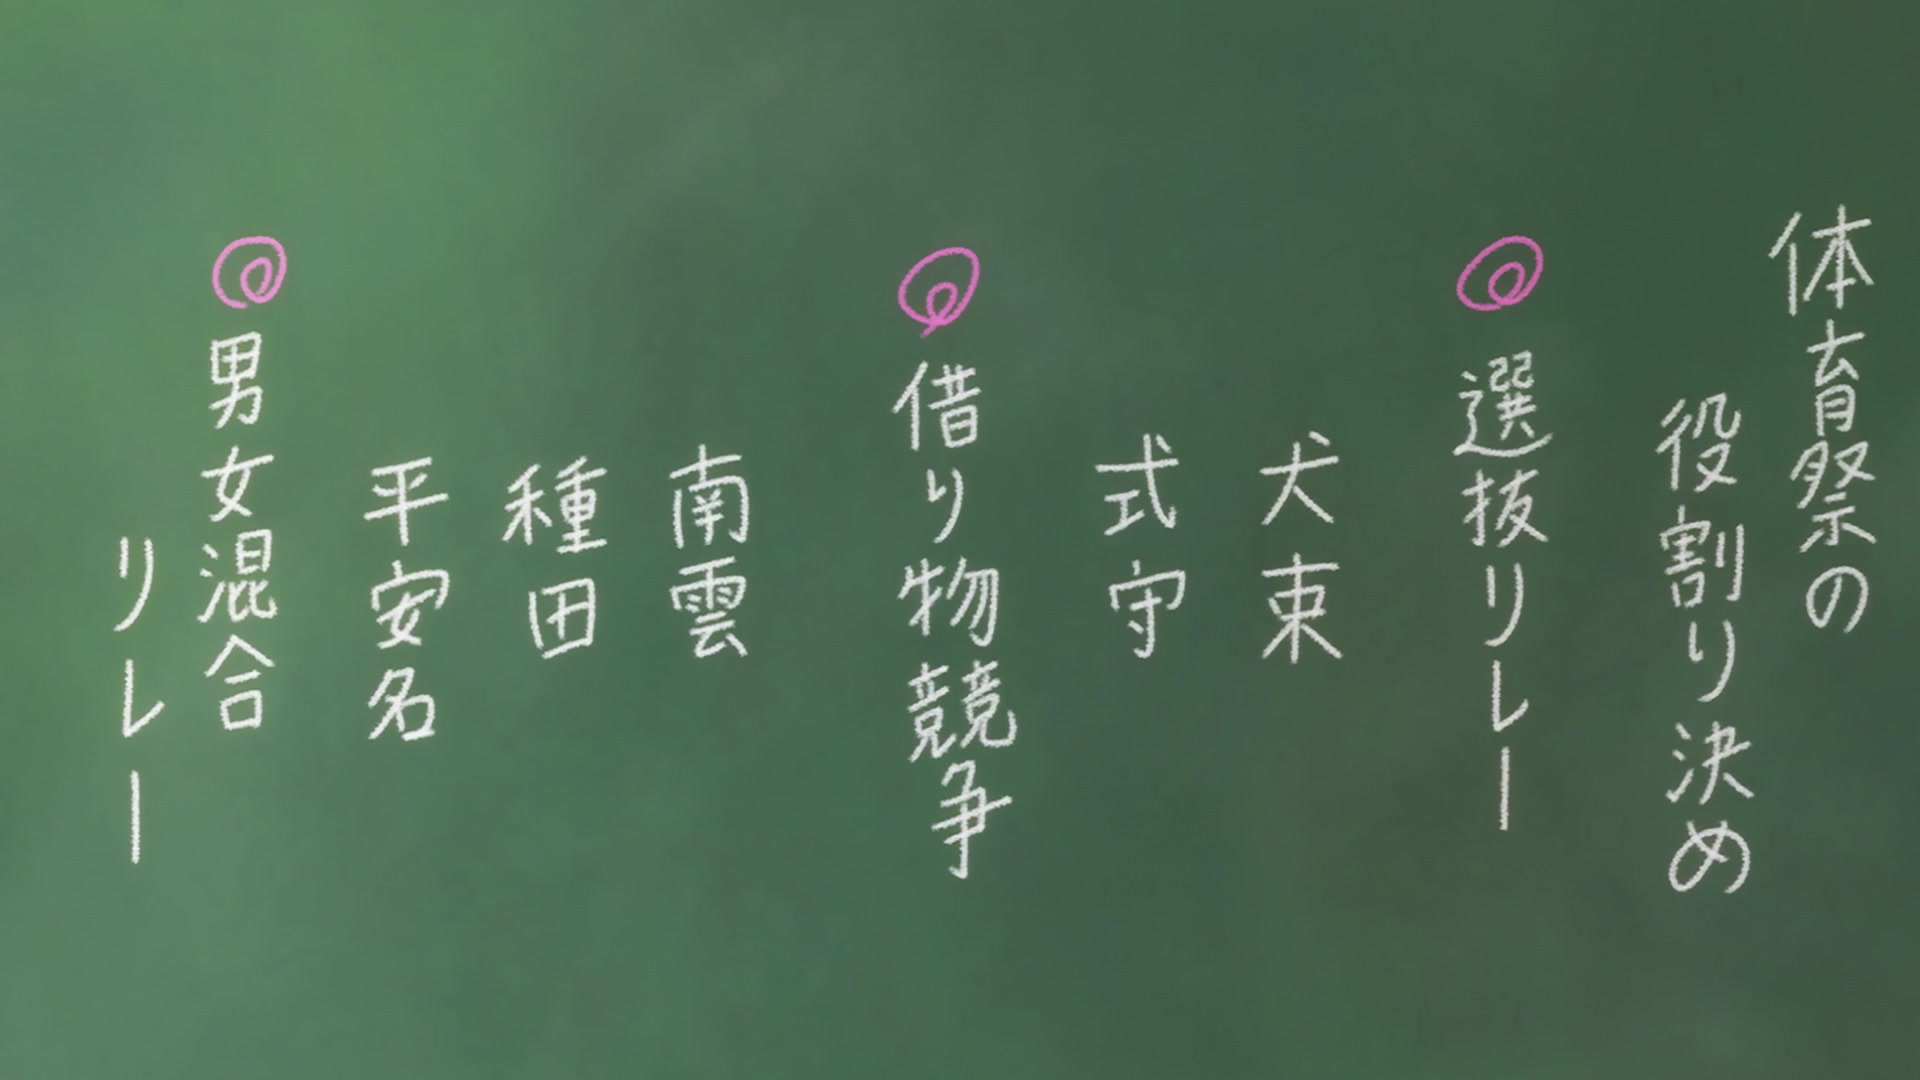 体育祭の
役割り決め
選抜リレー
犬束
式守
借り物競争
南雲
種田
平安名
男女混合
リレー